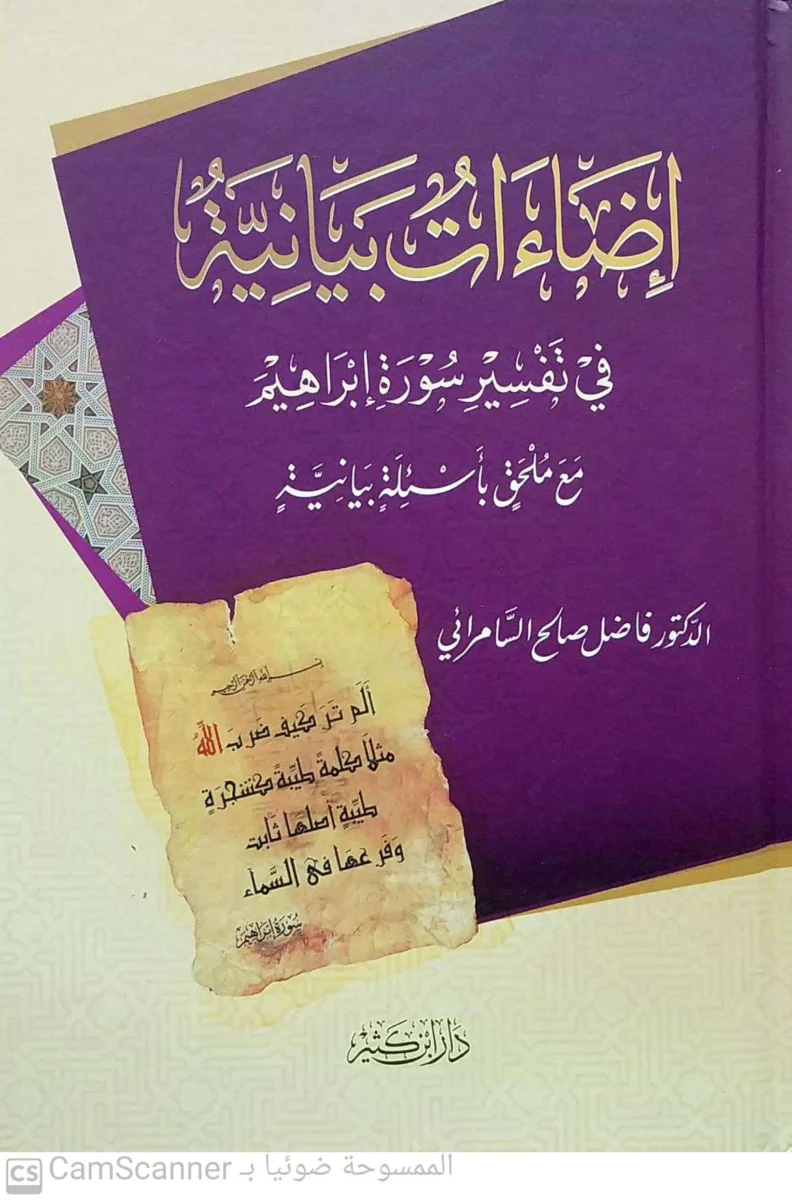 إِضَاءَاتٌ بَيَانِيَّةٌ
فِيْ تَفْسِيْرِ سُوْرَةِ إِبْرَاهِيْمَ
مَعَ مُلْحَقٍ بِأَسْئِلَةٍ بَيَانِيَّةٍ
الدكتور فاضل صالح السَّامرائي
بسم الله الرحمن الرحيم
أَلَم تَرَ كَيفَ ضَرَبَ اللَّهُ
مثلاً كلمةً طيِّبةً كشجرَةٍ
طيِّبةٍ أصلها ثابت
وَفَرعها في السَّماء
سُورَةُ إبْرَاهِيْمَ
دَار ابْن كَثِير
CS CamScanner الممسوحة ضوئيا بـ